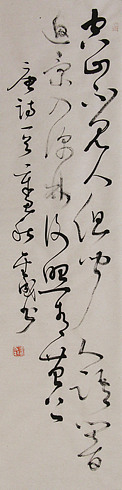 空山不見人但聞人語響
返景入深林復照青苔上
唐詩一首